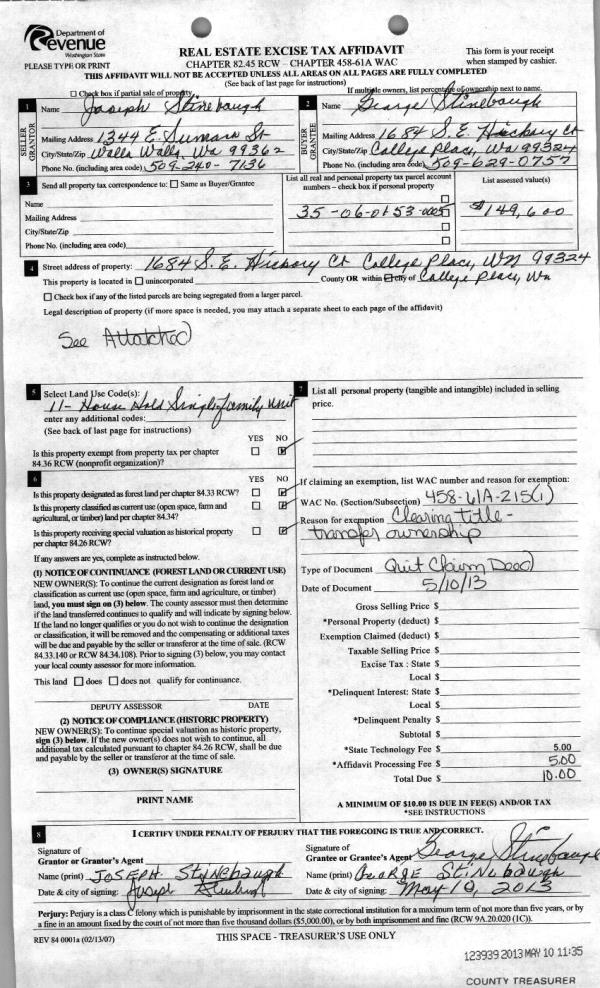 Department of
Revenue
Washington State
PLEASE TYPE OR PRINT
REAL ESTATE EXCISE TAX AFFIDAVIT
CHAPTER 82.45 RCW – CHAPTER 458-61A WAC
This form is your receipt
when stamped by cashier.
THIS AFFIDAVIT WILL NOT BE ACCEPTED UNLESS ALL AREAS ON ALL PAGES ARE FULLY COMPLETED
(See back of last page for instructions)
☐ Check box if partial sale of property
If multiple owners, list percentage of ownership next to name.
1 Name Joseph Stinebaugh
SELLER GRANTOR
Mailing Address 1344 E. Sumara St
City/State/Zip Walla Walla, Wa 99362
Phone No. (including area code) 509-240-7136
2 Name George Stinebaugh
BUYER GRANTEE
Mailing Address 1684 S.E. Hickory Ct
City/State/Zip College Place, Wa 99324
Phone No. (including area code) 509-629-0757
3 Send all property tax correspondence to: ☐ Same as Buyer/Grantee
Name
Mailing Address
City/State/Zip
Phone No. (including area code)
List all real and personal property tax parcel account
numbers – check box if personal property
35-06-0153-0005
List assessed value(s)
$149,600
4 Street address of property: 1684 S.E. Hickory Ct College Place, WA 99324
This property is located in ☐ unincorporated County OR within ☑ city of College Place, Wa
☐ Check box if any of the listed parcels are being segregated from a larger parcel.
Legal description of property (if more space is needed, you may attach a separate sheet to each page of the affidavit)
See Attatched
5 Select Land Use Code(s):
11- House Hold Single family Unit
enter any additional codes:
(See back of last page for instructions)
YES NO
Is this property exempt from property tax per chapter
84.36 RCW (nonprofit organization)?
6 YES NO
Is this property designated as forest land per chapter 84.33 RCW?
Is this property classified as current use (open space, farm and
agricultural, or timber) land per chapter 84.34?
Is this property receiving special valuation as historical property
per chapter 84.26 RCW?
If any answers are yes, complete as instructed below.
(1) NOTICE OF CONTINUANCE (FOREST LAND OR CURRENT USE)
NEW OWNER(S): To continue the current designation as forest land or
classification as current use (open space, farm and agriculture, or timber)
land, you must sign on (3) below. The county assessor must then determine
if the land transferred continues to qualify and will indicate by signing below.
If the land no longer qualifies or you do not wish to continue the designation
or classification, it will be removed and the compensating or additional taxes
will be due and payable by the seller or transferor at the time of sale. (RCW
84.33.140 or RCW 84.34.108). Prior to signing (3) below, you may contact
your local county assessor for more information.
This land ☐ does ☐ does not qualify for continuance.
DEPUTY ASSESSOR DATE
(2) NOTICE OF COMPLIANCE (HISTORIC PROPERTY)
NEW OWNER(S): To continue special valuation as historic property,
sign (3) below. If the new owner(s) does not wish to continue, all
additional tax calculated pursuant to chapter 84.26 RCW, shall be due
and payable by the seller or transferor at the time of sale.
(3) OWNER(S) SIGNATURE
PRINT NAME
7 List all personal property (tangible and intangible) included in selling
price.
If claiming an exemption, list WAC number and reason for exemption:
WAC No. (Section/Subsection) 458-61A-215(1)
Reason for exemption Clearing title -
transfer ownership
Type of Document Quit Claim Deed
Date of Document 5/10/13
Gross Selling Price $
*Personal Property (deduct) $
Exemption Claimed (deduct) $
Taxable Selling Price $
Excise Tax : State $
Local $
*Delinquent Interest: State $
Local $
*Delinquent Penalty $
Subtotal $
*State Technology Fee $ 5.00
*Affidavit Processing Fee $ 5.00
Total Due $ 10.00
A MINIMUM OF $10.00 IS DUE IN FEE(S) AND/OR TAX
*SEE INSTRUCTIONS
8 I CERTIFY UNDER PENALTY OF PERJURY THAT THE FOREGOING IS TRUE AND CORRECT.
Signature of
Grantor or Grantor's Agent
Name (print) JOSEPH Stinebaugh
Date & city of signing: Joseph Stinebaugh
Signature of
Grantee or Grantee's Agent George Stinebaugh
Name (print) GEORGE Stinebaugh
Date & city of signing: May 10, 2013
Perjury: Perjury is a class C felony which is punishable by imprisonment in the state correctional institution for a maximum term of not more than five years, or by
a fine in an amount fixed by the court of not more than five thousand dollars ($5,000.00), or by both imprisonment and fine (RCW 9A.20.020 (1C)).
REV 84 0001a (02/13/07)
THIS SPACE - TREASURER'S USE ONLY
123939 2013 MAY 10 11:35
COUNTY TREASURER